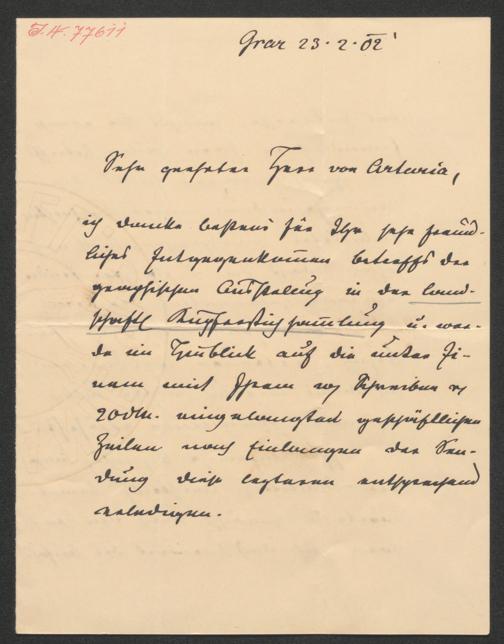 I.N. 77611
Graz 23.2.02
Sehr geehrter Herr von Artaria,
ich danke bestens für Ihr sehr freund-
liches Entgegenkommen betreffs der
graphischen Ausstellung in der land-
schaftl Kupferstichsammlung u. wer-
de im Hinblick auf die unter Ei-
nem mit Ihrem Schreiben
20 dM. eingelangten geschäftlichen
Zeilen nach Einlangen der Sen-
dung diese letzteren entsprechend
erledigen.